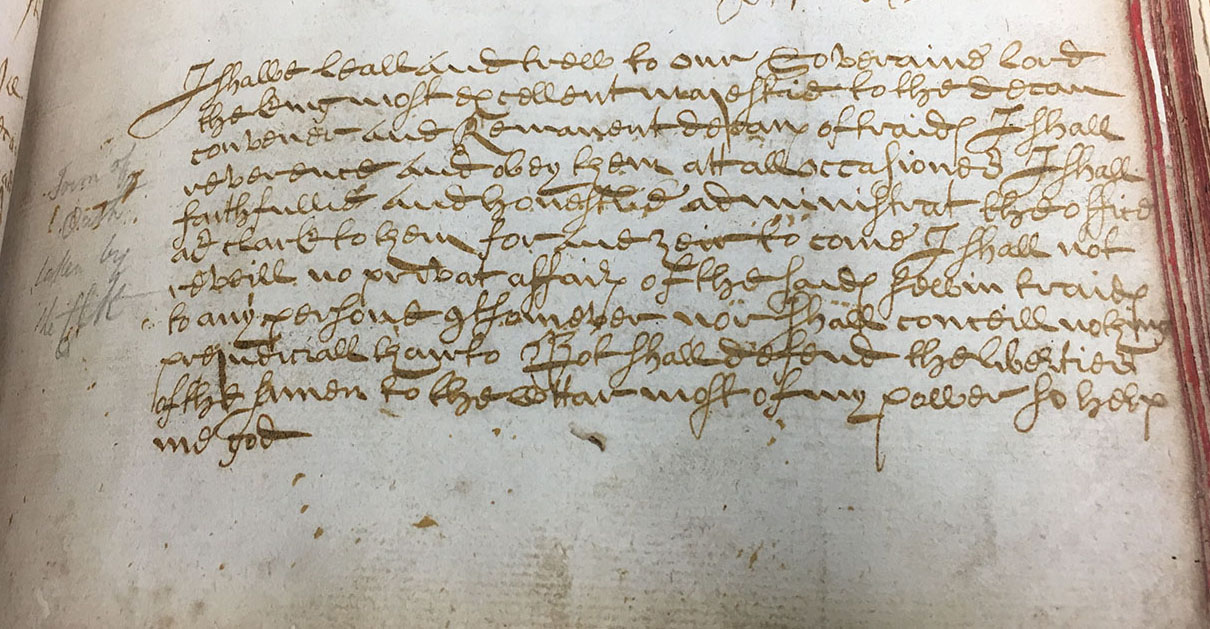 I shalbe leall and trew to our Soveraine lord
the king most excellent majestie to the decan
convener and Remanent decanis of traidis I shall
reverence and obey them att all occasiones I shall
faithfullie and honestlie administrat the office
as clark to them for ane zeir to come I shall not
reveill no privat affairis of the saids sevin traidis
to any persone qtsomever nor shall conceill nothing
prejudiciall thairto Bot shall defend the liberties
of the samen to the uttar most of my power so help
me god
Form of
Oath
taken by
the